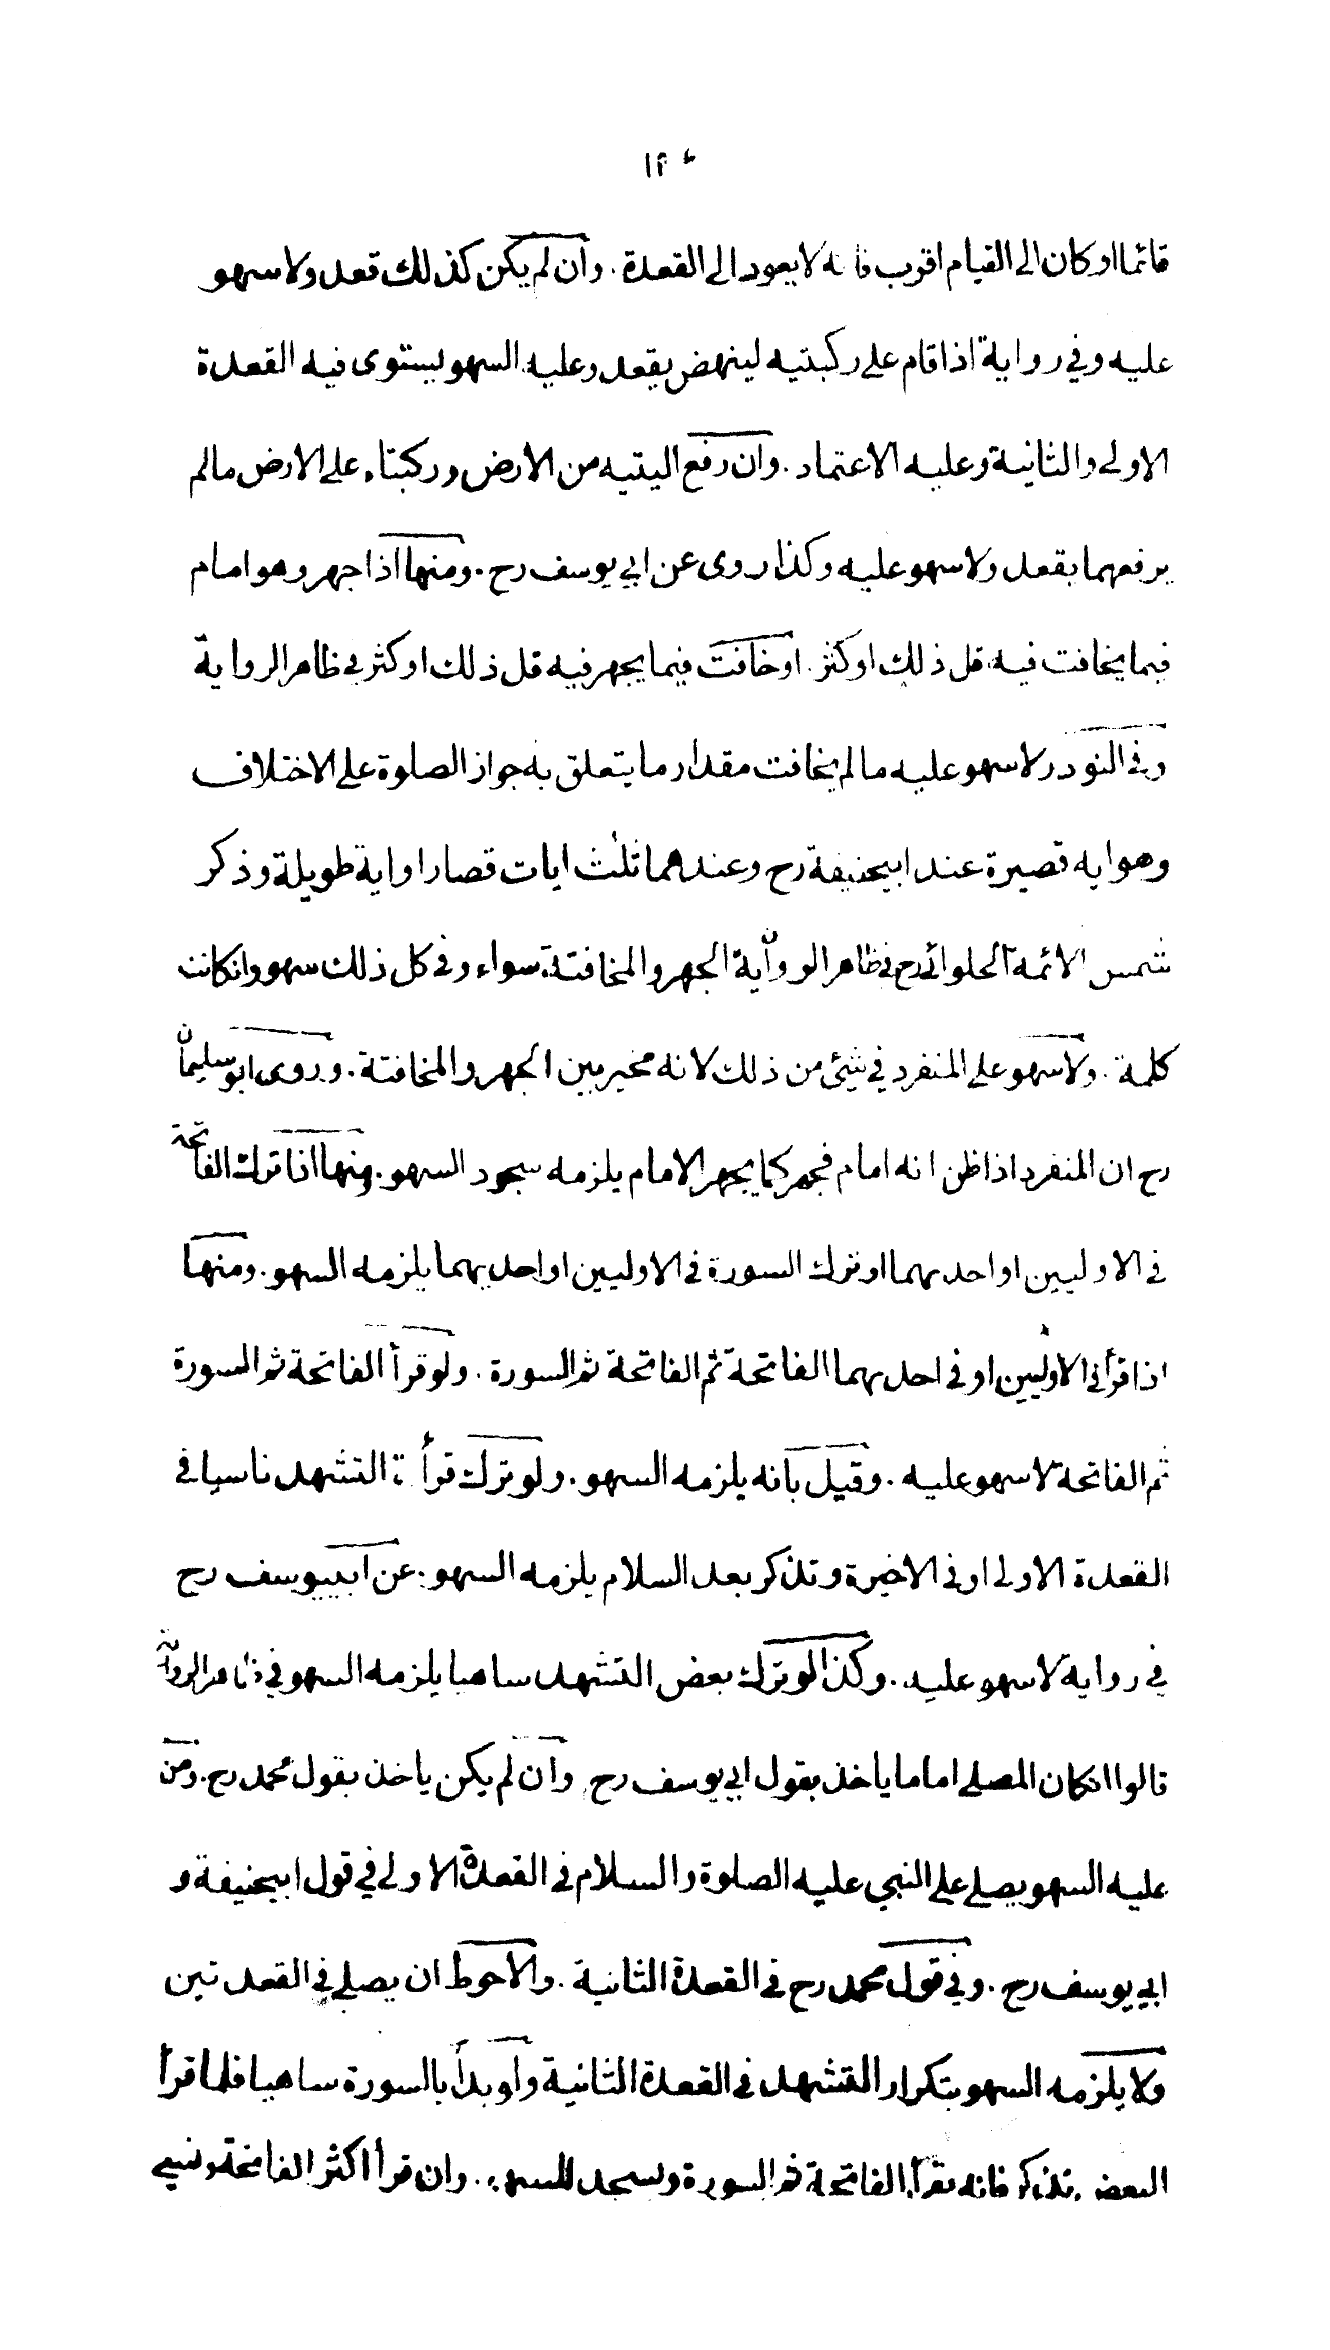 ١٤
قائما او كان الى القيام اقرب فانه لا يعود الى القعدة . وان لم يكن كذلك قعد ولا سهو
عليه وفي رواية اذا قام على ركبتيه لينهض يقعد وعليه السهو يستوى فيه القعدة
الاولى والثانية وعليه الاعتماد . وان رفع اليتيه من الارض وركبتاه على الارض مالم
يرفعهما يقعد ولا سهو عليه وكذا روى عن ابي يوسف رح . ومنها اذا جهر وهو امام
فيما يخافت فيه قل ذلك او كثر . او خافت فيما يجهر فيه قل ذلك او كثر في ظاهر الرواية
وفي النودر لا سهو عليه مالم يخافت مقدار ما يتعلق به جواز الصلوة على الاختلاف
وهو ايه قصيرة عند ابيحنيفة رح وعندهما ثلث ايات قصار او اية طويلة وذكر
شمس الائمة الحلوائي رح في ظاهر الرواية ان الجهر والمخافتة سواء وفي كل ذلك سهو وان كانت
كلمة . ولا سهو على المنفرد في شيئ من ذلك لانه مخير بين الجهر والمخافتة . وروى ابو سليمان
رح ان المنفرد اذا ظن انه امام فجهر كما يجهر الامام يلزمه سجود السهو . ومنها اذا ترك الفاتحة
في الاوليين او احديهما او ترك السورة في الاوليين او احديهما يلزمه السهو . ومنها
اذا قرأ في الاوليين او في احديهما الفاتحة ثم الفاتحة ثم السورة . ولو قرأ الفاتحة ثم السورة
ثم الفاتحة لا سهو عليه . وقيل بانه يلزمه السهو . ولو ترك قرأة التشهد ناسيا في
القعدة الاولى او في الاخيرة وتذكر بعد السلام يلزمه السهو . عن ابييوسف رح
في رواية لا سهو عليه . وكذا لو ترك بعض التشهد ساهيا يلزمه السهو في ظاهر الرواية
قالوا انكان المصلى اماما ياخذ بقول ابي يوسف رح وان لم يكن ياخذ بقول محمد رح . ومن
عليه السهو يصلى على النبي عليه الصلوة والسلام في القعدة الاولى في قول ابيحنيفة و
ابي يوسف رح . وفي قول محمد رح في القعدة الثانية . والاحوط ان يصلى في القعدتين
ولا يلزمه السهو بتكرار التشهد في القعدة الثانية ولو بدأ بالسورة ساهيا فلما قرأ
البعض تذكر فانه يقرأ الفاتحة ثم السورة ويسجد للسهو . وان قرأ اكثر الفاتحة ونسي